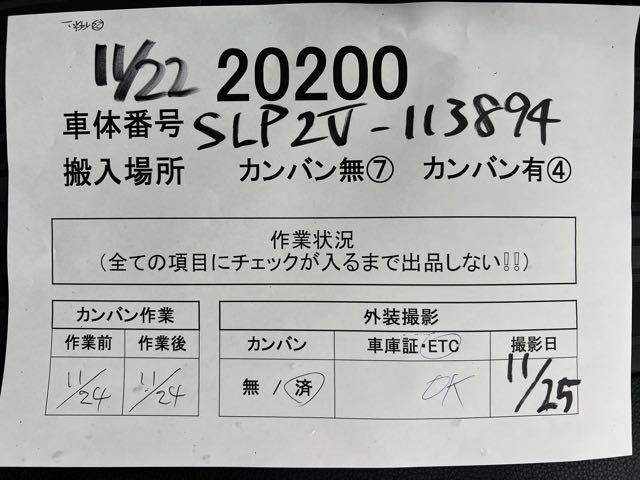 11/22 20200
車体番号 SLP2V-113894
搬入場所 カンバン無⑦ カンバン有④
作業状況
(全ての項目にチェックが入るまで出品しない!!)
カンバン作業 外装撮影
作業前 作業後 カンバン 車庫証・ETC 撮影日
11/24 11/24 無 / 済 OK 11/25